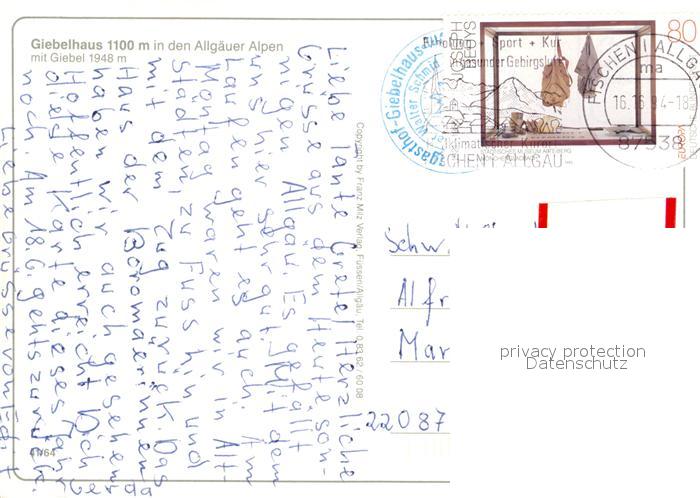 Giebelhaus 1100 m in den Allgäuer Alpen
mit Giebel 1948 m
Liebe Tante Grete! Herzliche
Grüsse aus dem Heute son-
nigen Allgäu. Es gefällt
uns hier sehr gut. Mit dem
Laufen geht es auch. Am
Montag waren wir in Alt-
städten, zu Fuss hin und
mit dem Zug zurück. Das
Haus der Boromäerinnen
haben wir auch gesehen.
Hoffentlich erreicht Dich
diese Karte dieses Jahr
noch. Am 18.6. gehts zurück.
Liebe Grüsse von Edit
Gerda
41/64
Copyright by Franz Milz Verlag, Füssen/Allgäu, Tel. 0 83 62 / 60 08
Berggasthof-Giebelhaus
Walter Schmid
Erholung + Sport + Kur
gesunder Gebirgsluft
heilklimatischer Kurort
FISCHEN I ALLGÄU
FISCHEN I ALLGÄU
ma
16.-6.94-18
87538
JOSEPH
BEUYS
80
EUROPA
Schw.
Alfr
Mar
22087
privacy protection
Datenschutz